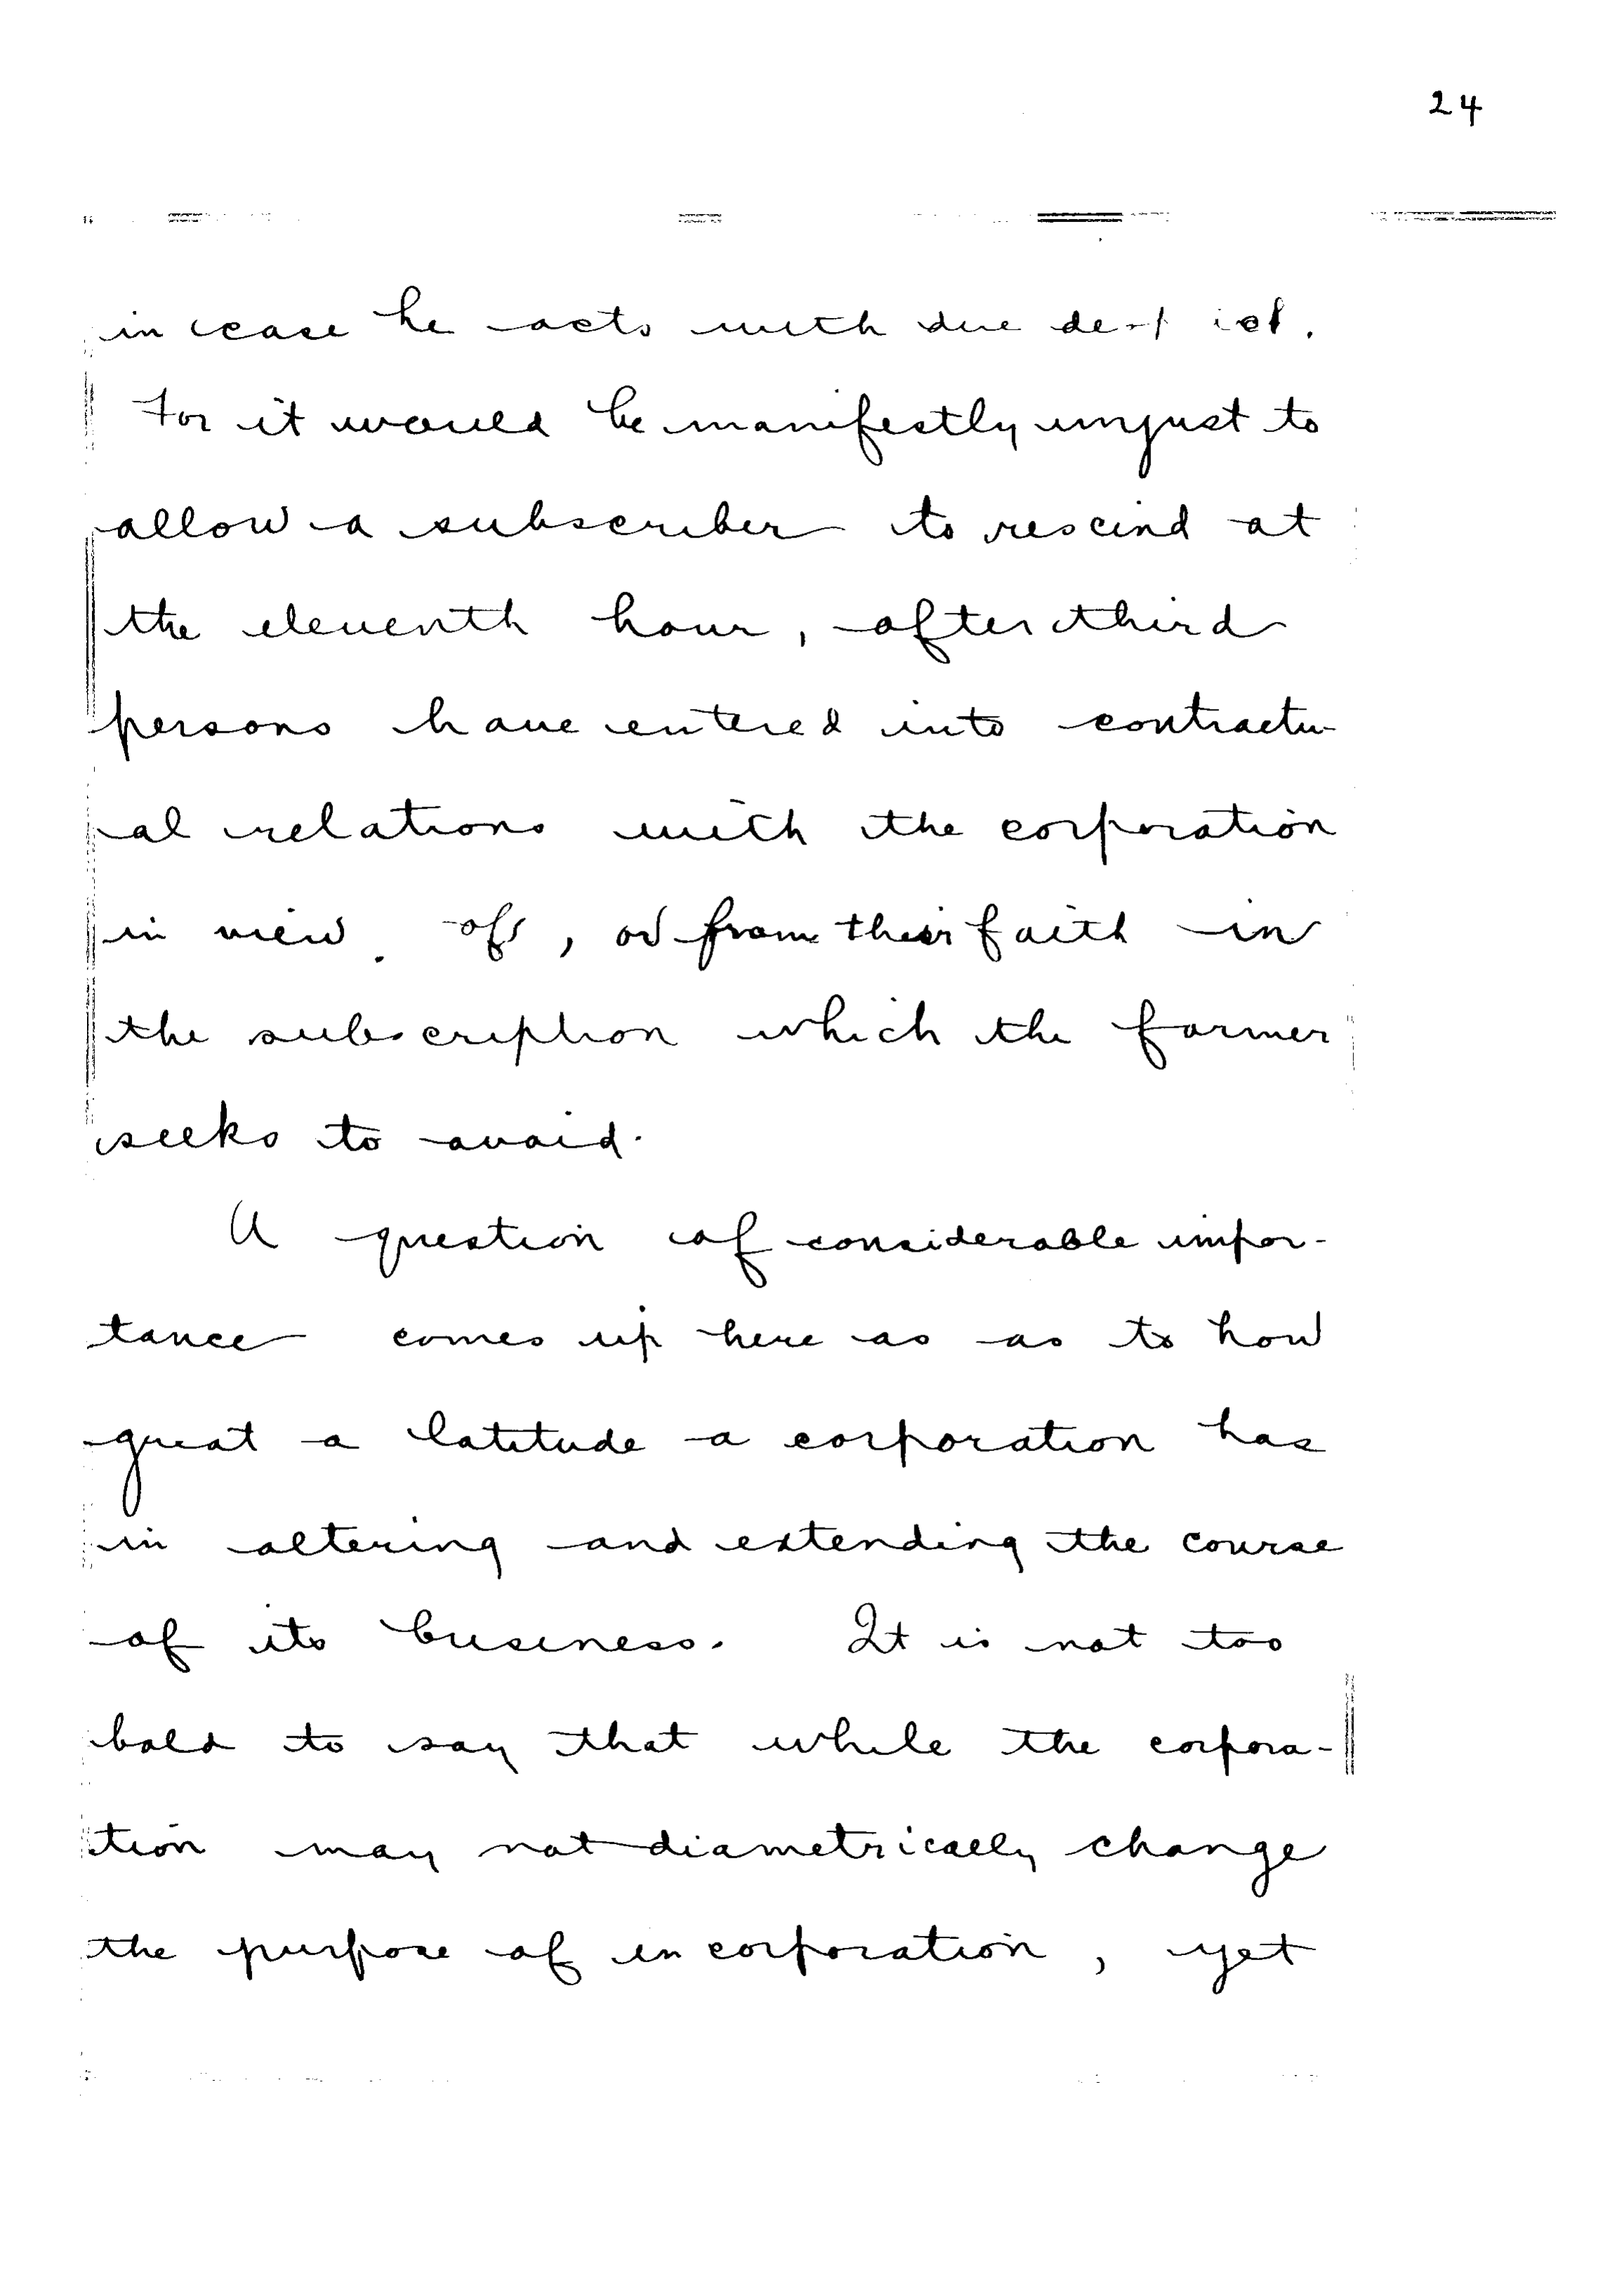 24
in case he acts with due
For it would be manifestly unjust to
allow a subscriber to rescind at
the eleventh hour, after third
persons have entered into contractu-
al relations with the corporation
in view of, or from their faith in
the subscription which the former
seeks to avoid.
A question of considerable impor-
tance comes up here as as to how
great a latitude a corporation has
in altering and extending the course
of its business. It is not too
bold to say that while the corpora-
tion may not diametrically change
the purpose of incorporation, yet